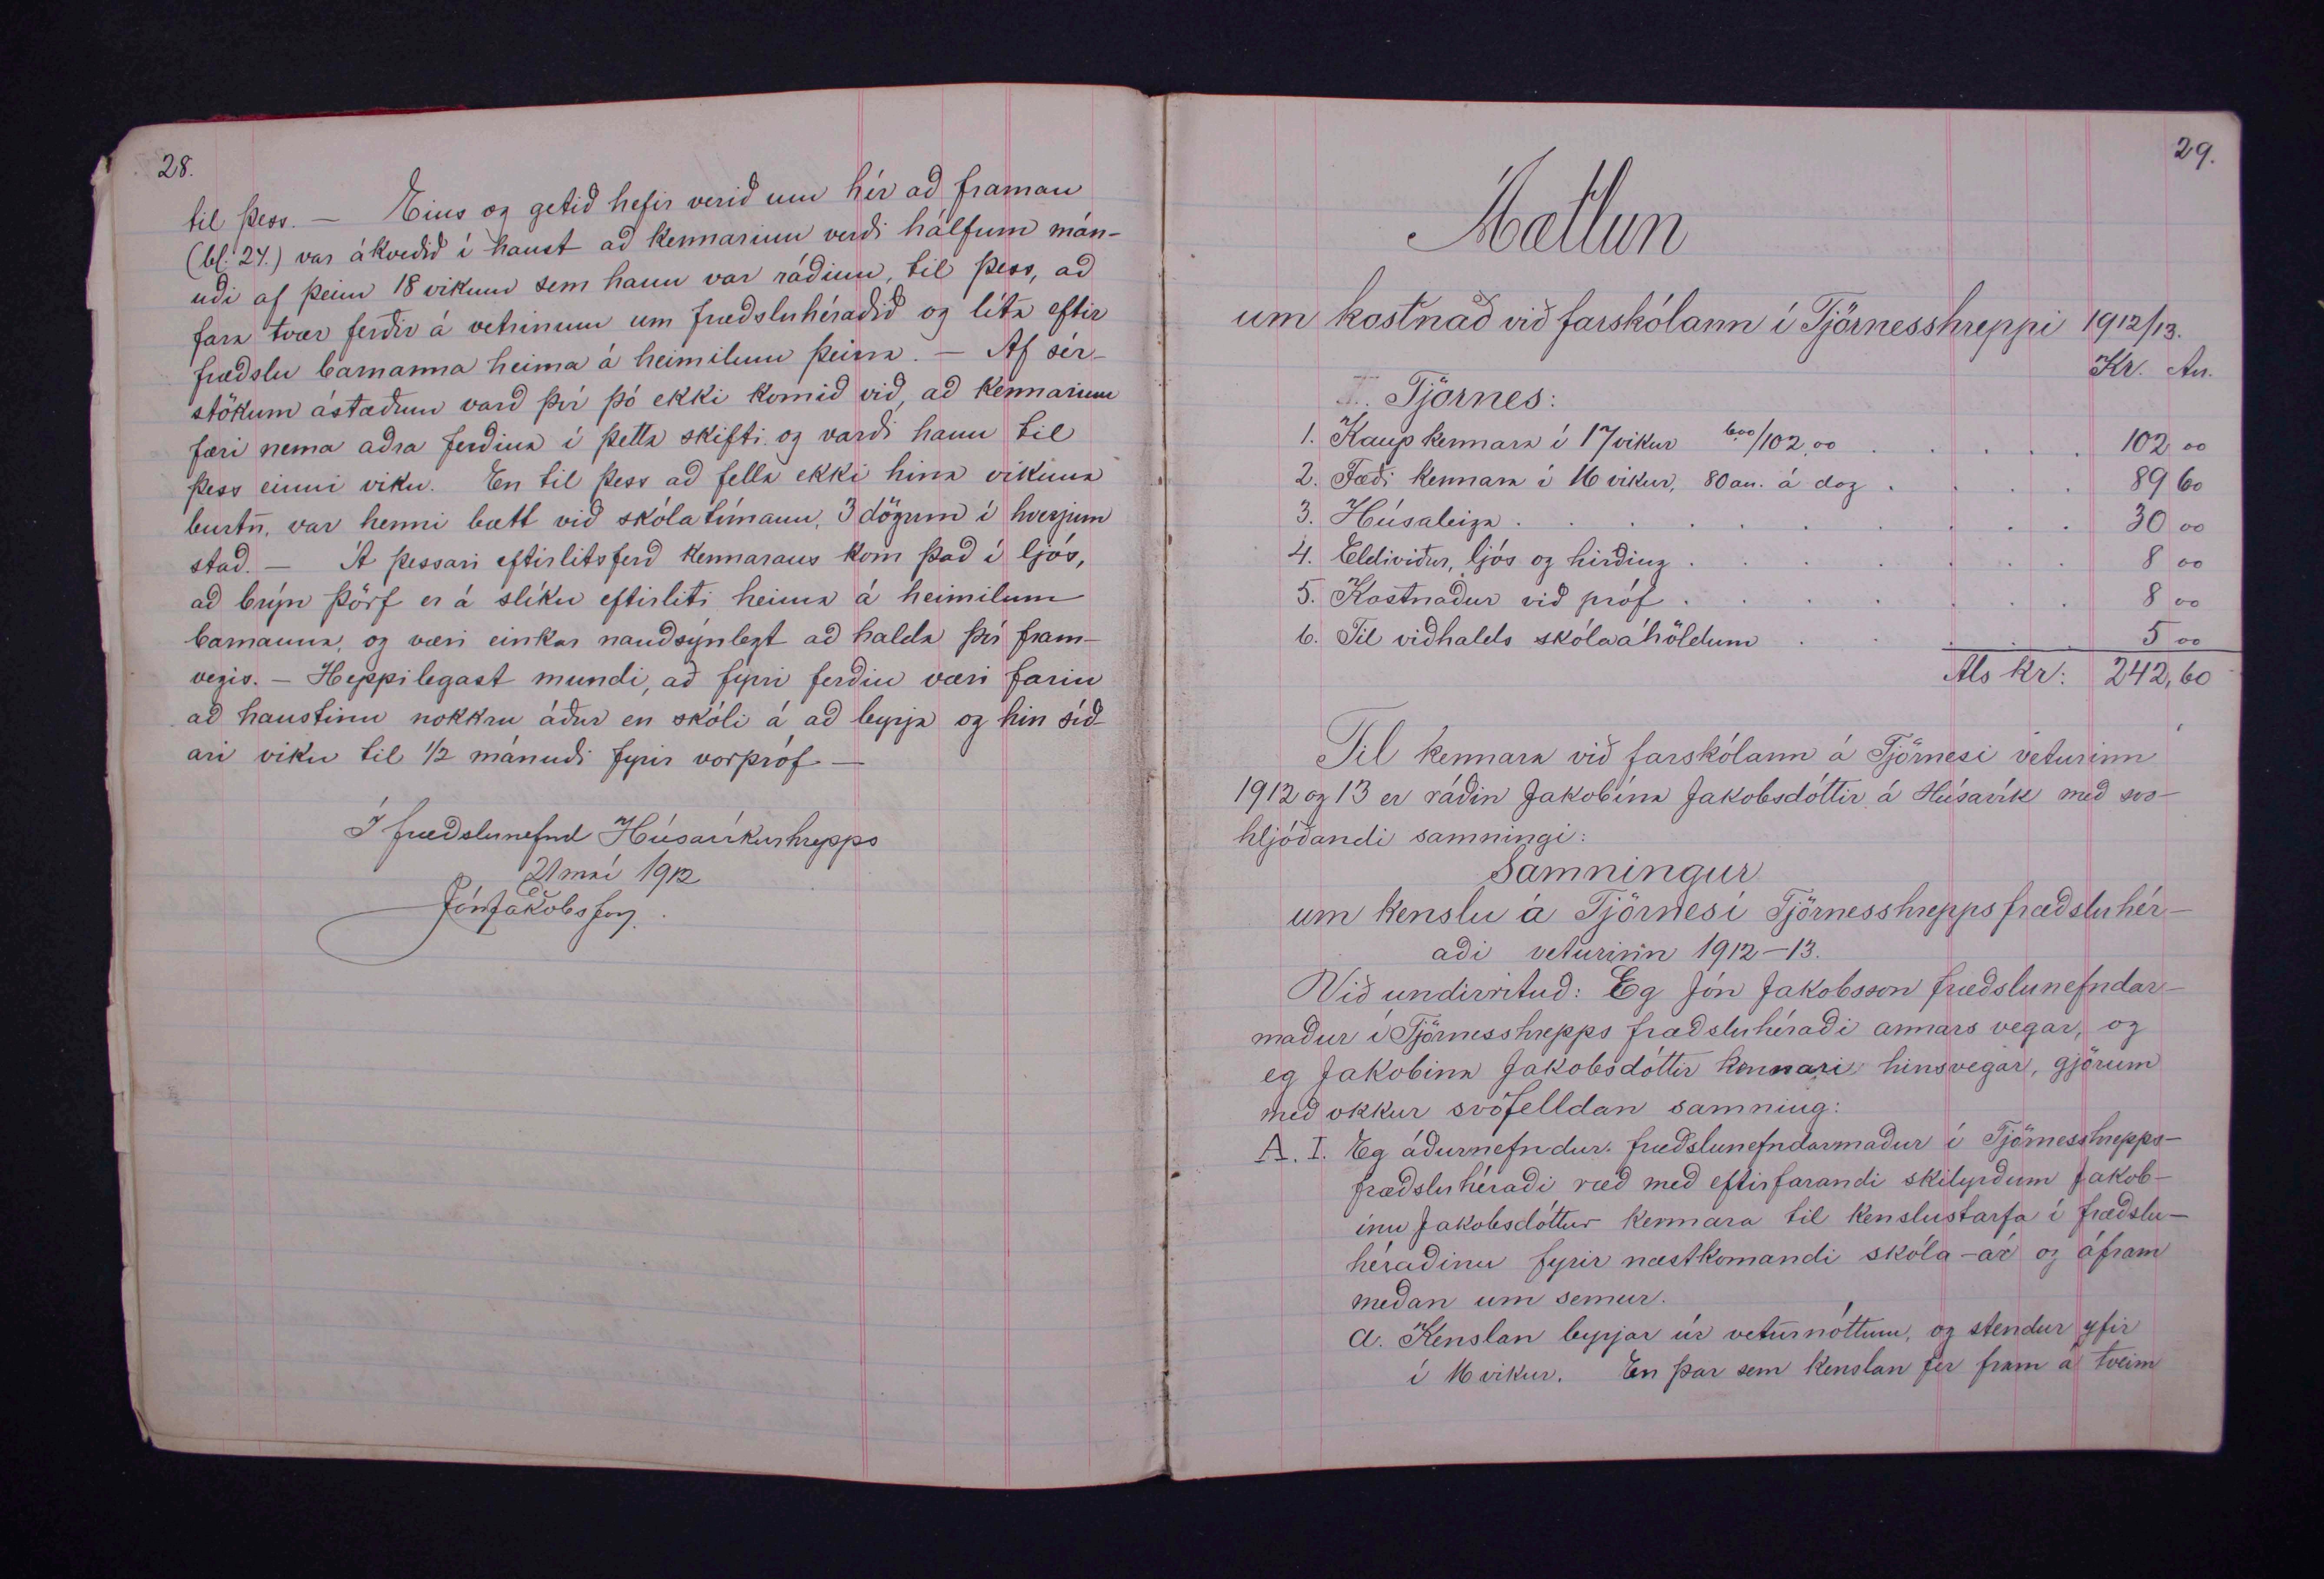 28.
til þess. — Eins og getið hefir verið um hér að framan
(bl. 24.) var ákveðið í haust að kennarinn verði hálfum mán-
uði af þeim 18 vikum sem hann var ráðinn, til þess, að
fara tvær ferðir á vetrinum um fræðsluhéraðið og líta eftir
fræðslu barnanna heima á heimilum þeirra. — Af sér-
stökum ástæðum varð því þó ekki komið við, að kennarinn
færi nema aðra ferðina í þetta skifti og varði hann til
þess einni viku. En til þess að fella ekki hina vikuna
burtu, var henni bætt við skólatímann, 3 dögum í hverjum
stað. — Á þessari eftirlitsferð kennarans kom það í ljós,
að brýn þörf er á slíku eftirliti heima á heimilum
barnanna, og væri einkar nauðsýnlegt að halda því fram-
vegis. — Heppilegast mundi, að fyrri ferðin væri farin
að haustinu nokkru áður en skóli á að byrja og hin síð-
ari viku til 1/2 mánuði fyrir vorpróf —
Í fræðslunefnd Húsavíkurhrepps
21 maí 1912
Jón Jakobsson.
29.
Áætlun
um kostnað við farskólann í Tjörnesshreppi 1912/13.
Kr. Au.
I. Tjörnes:
1. Kaup kennara í 17 vikur 6,00/102,00 . . . . . 102 00
2. Fæði kennara í 16 vikur, 80 au. á dag . . . . 89 60
3. Húsaleiga . . . . . . . . . 30 00
4. Eldiviður, ljós og hirðing . . . . . . . 8 00
5. Kostnaður við próf . . . . . . . 8 00
6. Til viðhalds skólaáhöldum . . . . . 5 00
Als kr: 242,60
Til kennara við farskólann á Tjörnesi veturinn
1912 og 13 er ráðin Jakobína Jakobsdóttir á Húsavík með svo-
hljóðandi samningi:
Samningur
um kenslu á Tjörnesi Tjörnesshrepps fræðsluhér-
aði veturinn 1912–13.
Við undirrituð: Eg Jón Jakobsson fræðslunefndar-
maður í Tjörnesshrepps fræðsluhéraði annars vegar, og
eg Jakobína Jakobsdóttir kennari hinsvegar, gjörum
með okkur svofelldan samning:
A. I. Eg áðurnefndur fræðslunefndarmaður í Tjörnesshrepps-
fræðsluhéraði ræð með eftirfarandi skilyrðum Jakob-
ínu Jakobsdóttur kennara til kenslustarfa í fræðslu-
héraðinu fyrir næstkomandi skóla-ár og áfram
meðan um semur.
a. Kenslan byrjar úr veturnóttum, og stendur yfir
í 16 vikur. En þar sem kenslan fer fram á tveim